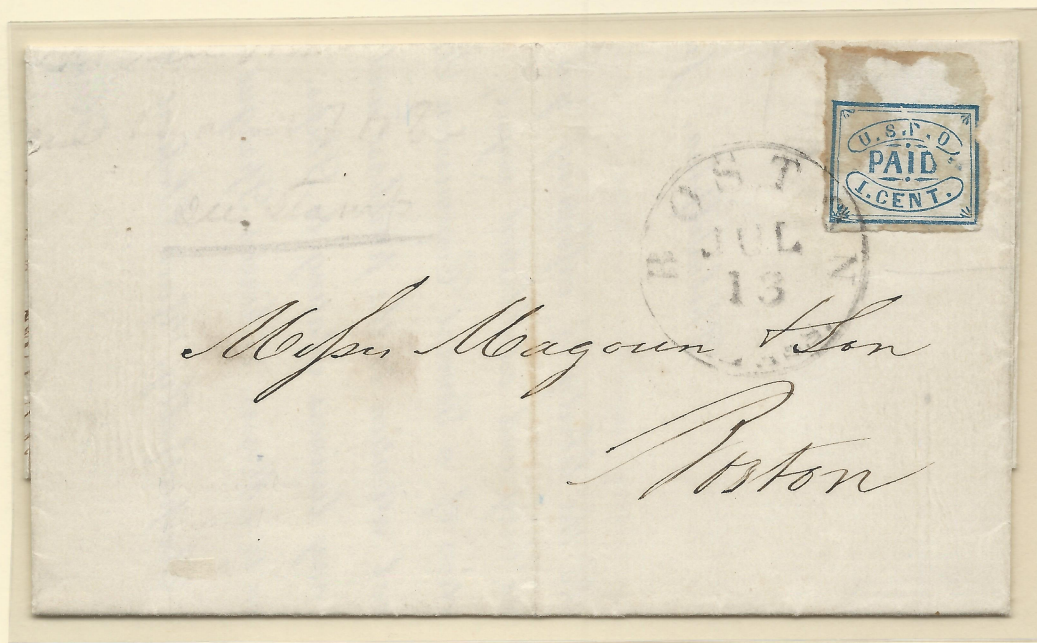 U.S.P.O.
PAID
1.CENT.
BOSTON
JUL
13
Messrs Magoun & Son
Boston